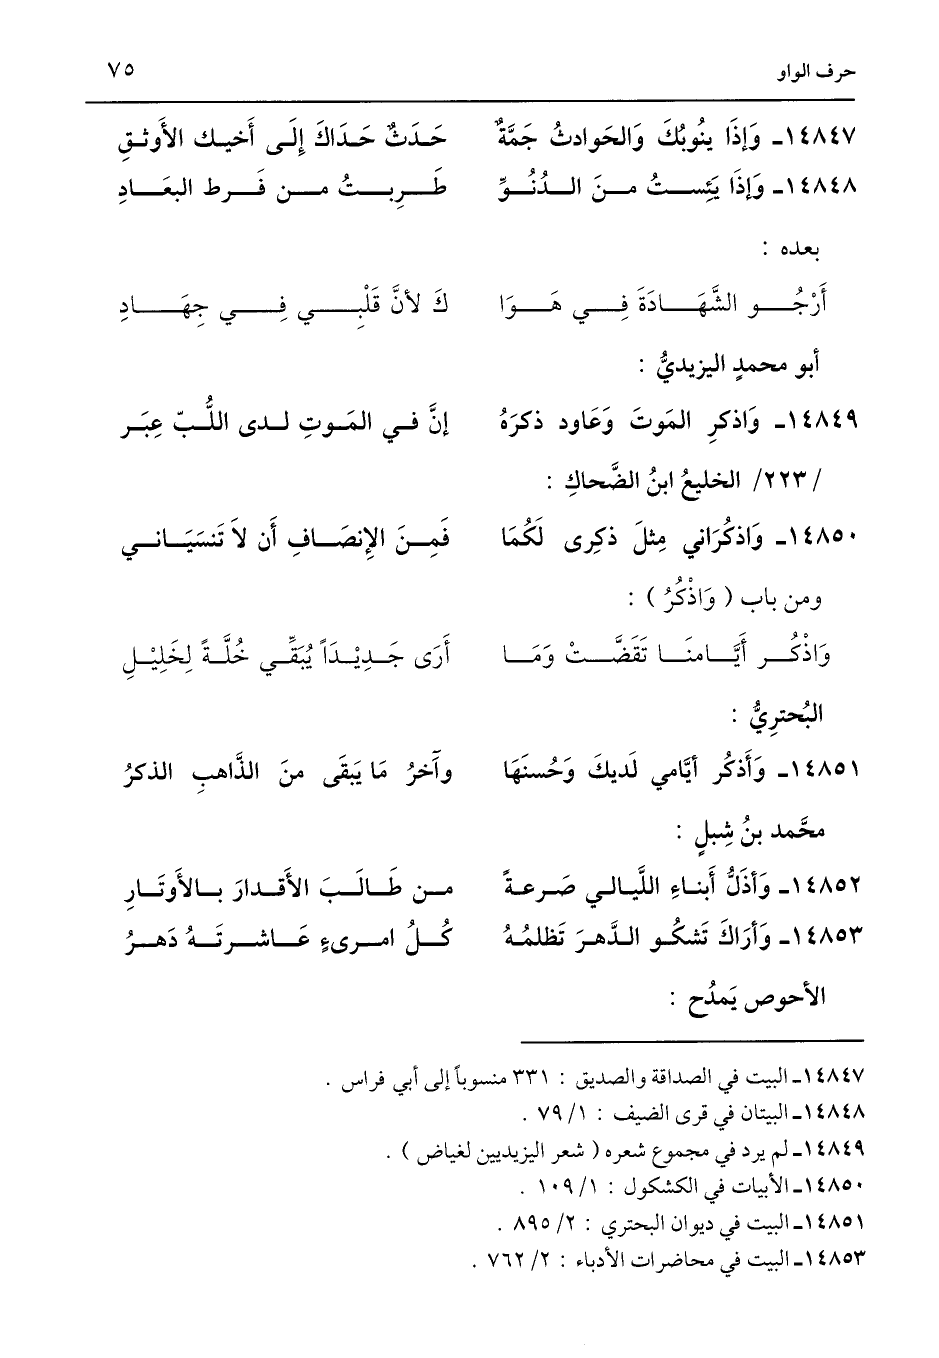 حرف الواو ٧٥
١٤٨٤٧ـ وَإِذَا ينُوبُكَ وَالحَوادثُ جَمَّةٌ حَدَثٌ حَدَاكَ إِلَى أَخيك الأَوثقِ
١٤٨٤٨ـ وَإِذَا يَئِستُ منَ الدُنُوِّ طَرِبتُ من فَرط البعَادِ
بعده :
أَرْجُو الشَّهَادَةَ فِي هَوَا كَ لأنَّ قَلْبِي فِي جِهَادِ
أبو محمدٍ اليزيديُّ :
١٤٨٤٩ـ وَاذكرِ المَوتَ وَعَاود ذكرَهُ إنَّ في المَوتِ لدى اللُّبّ عِبَر
/٢٢٣/ الخليعُ ابنُ الضَّحاكِ :
١٤٨٥٠ـ وَاذكُرَاني مِثلَ ذكِرى لَكُمَا فَمِنَ الإِنصَافِ أَن لاَ تَنسَيَاني
ومن باب ( وَاذْكُرُ ) :
وَاذْكُر أَيَّامنَا تَقَضَّتْ وَمَا أَرَى جَدِيْدَاً يُبَقِّي خُلَّةً لِخَلِيْلِ
البُحترِيُّ :
١٤٨٥١ـ وَأَذكُر أيَّامي لَديكَ وَحُسنَهَا وآخرُ مَا يَبقَى منَ الذَّاهبِ الذكرُ
محَّمد بنُ شِبلٍ :
١٤٨٥٢ـ وَأذَلُّ أَبنَاءِ اللَّيالي صَرعةً من طَالَبَ الأَقدارَ بالأَوتَارِ
١٤٨٥٣ـ وَأرَاكَ تَشكُو الدَّهرَ تَظلمُهُ كُلُ امرىءٍ عَاشرتَهُ دَهرُ
الأحوص يَمدُح :
١٤٨٤٧ـ البيت في الصداقة والصديق : ٣٣١ منسوباً إلى أبي فراس .
١٤٨٤٨ـ البيتان في قرى الضيف : ١/ ٧٩ .
١٤٨٤٩ـ لم يرد في مجموع شعره ( شعر اليزيديين لغياض ) .
١٤٨٥٠ـ الأبيات في الكشكول : ١/ ١٠٩ .
١٤٨٥١ـ البيت في ديوان البحتري : ٢/ ٨٩٥ .
١٤٨٥٣ـ البيت في محاضرات الأدباء : ٢/ ٧٦٢ .